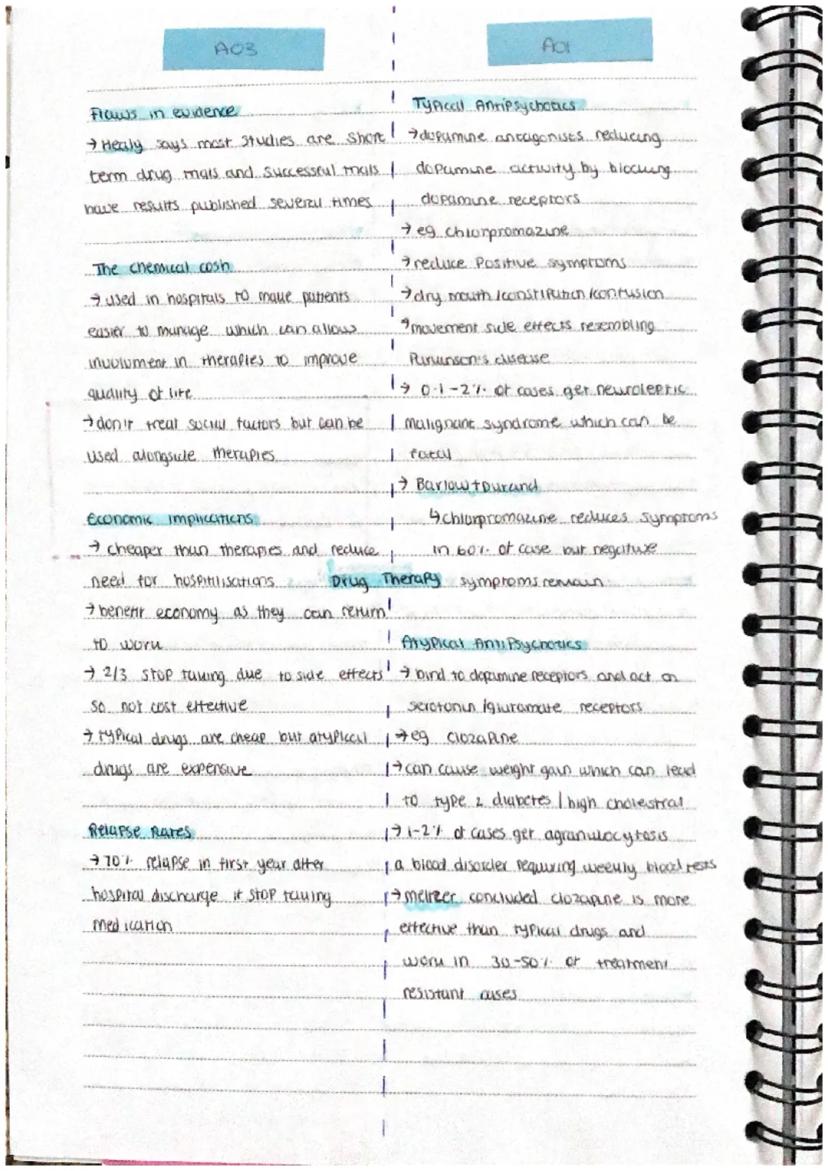 AO3
Flaws in evidence
→ Healy says most studies are short
term drug trials and successful trials
have results published several times
The chemical cosh
→ used in hospitals to make patients
easier to manage which can allows
involvment in therapies to improve
quality of life
→ don't treat social factors but can be
used alongside therapies
Economic implications
→ cheaper than therapies and reduce
need for hospitilisations
→ benefit economy as they can return
to work
→ 2/3 stop taking due to side effects
so not cost effective
→ typical drugs are cheap but atypical
drugs are expensive
Relapse Rates
→ 70% relapse in first year after
hospital discharge if stop taking
medication
Drug Therapy
AO1
Typical Antipsychotics
→ dopamine antagonists reducing
dopamine activity by blocking
dopamine receptors
→ eg chlorpromazine
→ reduce positive symptoms
→ dry mouth/constipation/confusion
→ movement side effects resembling
Parkinson's disease
→ 0.1-2% of cases get neuroleptic
malignant syndrome which can be
fatal
→ Barlow + Durand
↳ chlorpromazine reduces symptoms
in 60% of case but negative
symptoms remain
Atypical Antipsychotics
→ bind to dopamine receptors and act on
serotonin/glutamate receptors
→ eg clozapine
→ can cause weight gain which can lead
to type 2 diabetes/high cholestral
→ 1-2% of cases get agranulocytosis
a blood disorder requiring weekly blood tests
→ melzer concluded clozapine is more
effective than typical drugs and
work in 30-50% of treatment
resistant cases